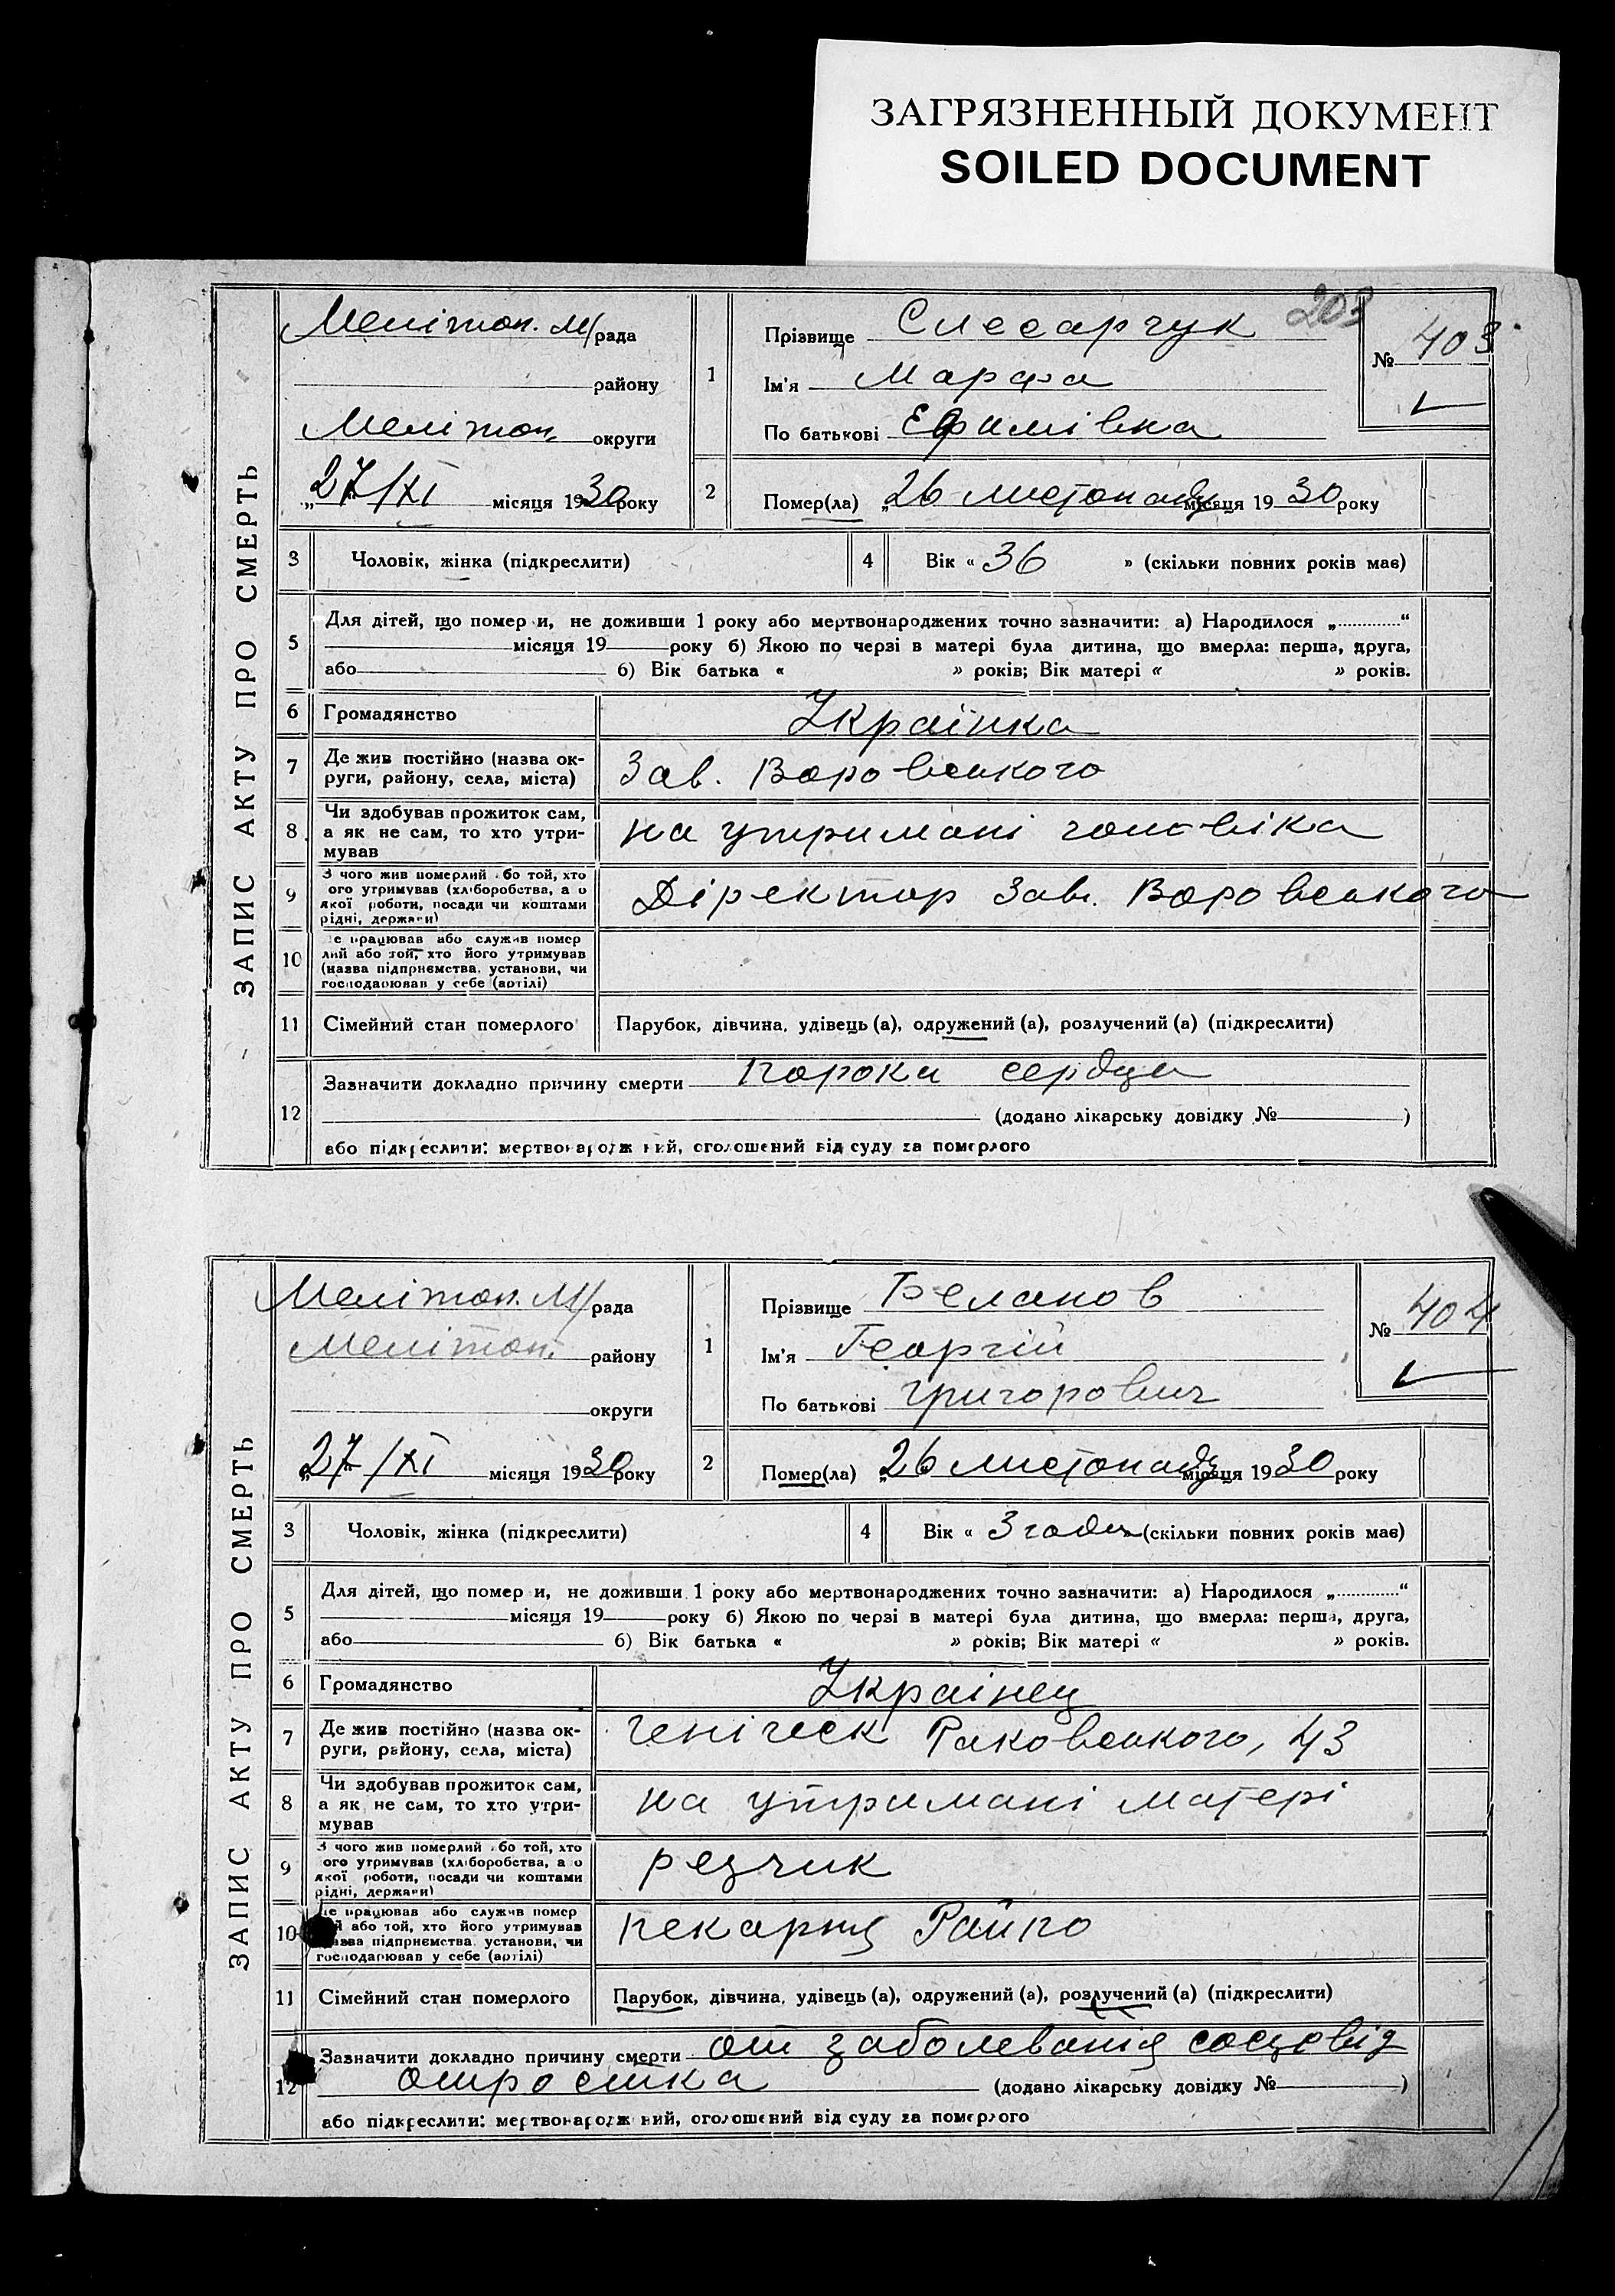 ЗАГРЯЗНЕННЫЙ ДОКУМЕНТ
SOILED DOCUMENT
ЗАПИС АКТУ ПРО СМЕРТЬ
Мелітоп. М/рада
району
Мелітоп. округи
„27/XI місяця 1930 року
1
Прізвище Слесарчук
203
Ім'я Марфа
По батькові Ефимівна
№ 403
2
Помер(ла) „26 листопаду місяця 1930 року
3 Чоловік, жінка (підкреслити)
4 Вік « 36 » (скільки повних років має)
5
Для дітей, що помер и, не доживши 1 року або мертвонароджених точно зазначити: а) Народилося „............“
місяця 19 року б) Якою по черзі в матері була дитина, що вмерла: перша, друга,
або б) Вік батька « » років; Вік матері « » років.
6 Громадянство Українка
7 Де жив постійно (назва ок-
руги, району, села, міста)
Зав. Воровського
8 Чи здобував прожиток сам,
а як не сам, то хто утри-
мував
на утримані чоловіка
9 З чого жив померлий або той, хто
ого утримував (хліборобства, а о
якої роботи, посади чи коштами
рідні, держави)
Діректор Зав. Воровського
10 е працював або служив помер
лий або той, хто його утримував
(назва підприємства, установи, чи
господарював у себе (артілі)
11 Сімейний стан померлого Парубок, дівчина, удівець (а), одружений (а), розлучений (а) (підкреслити)
12
Зазначити докладно причину смерти порока сердца
(додано лікарську довідку № )
або підкреслити: мертвонародж ний, оголошений від суду за померлого
ЗАПИС АКТУ ПРО СМЕРТЬ
Мелітоп. М/рада
Мелітоп. району
округи
„27/XI місяця 1930 року
1
Прізвище Беланов
Ім'я Георгій
По батькові Григорович
№ 404
2
Помер(ла) „26 листопаду місяця 1930 року
3 Чоловік, жінка (підкреслити)
4 Вік « 3 года » (скільки повних років має)
5
Для дітей, що помер и, не доживши 1 року або мертвонароджених точно зазначити: а) Народилося „............“
місяця 19 року б) Якою по черзі в матері була дитина, що вмерла: перша, друга,
або б) Вік батька « » років; Вік матері « » років.
6 Громадянство Українец
7 Де жив постійно (назва ок-
руги, району, села, міста)
Геніческ Раковського, 43
8 Чи здобував прожиток сам,
а як не сам, то хто утри-
мував
на утримані матері
9 З чого жив померлий або той, хто
ого утримував (хліборобства, а о
якої роботи, посади чи коштами
рідні, держави)
резчик
10 е працював або служив помер
й або той, хто його утримував
назва підприємства, установи, чи
господарював у себе (артілі)
пекарня Райпо
11 Сімейний стан померлого Парубок, дівчина, удівець (а), одружений (а), розлучений (а) (підкреслити)
12
Зазначити докладно причину смерти от заболеванія сосцовід
отростка (додано лікарську довідку № )
або підкреслити: мертвонародж ний, оголошений від суду за померлого